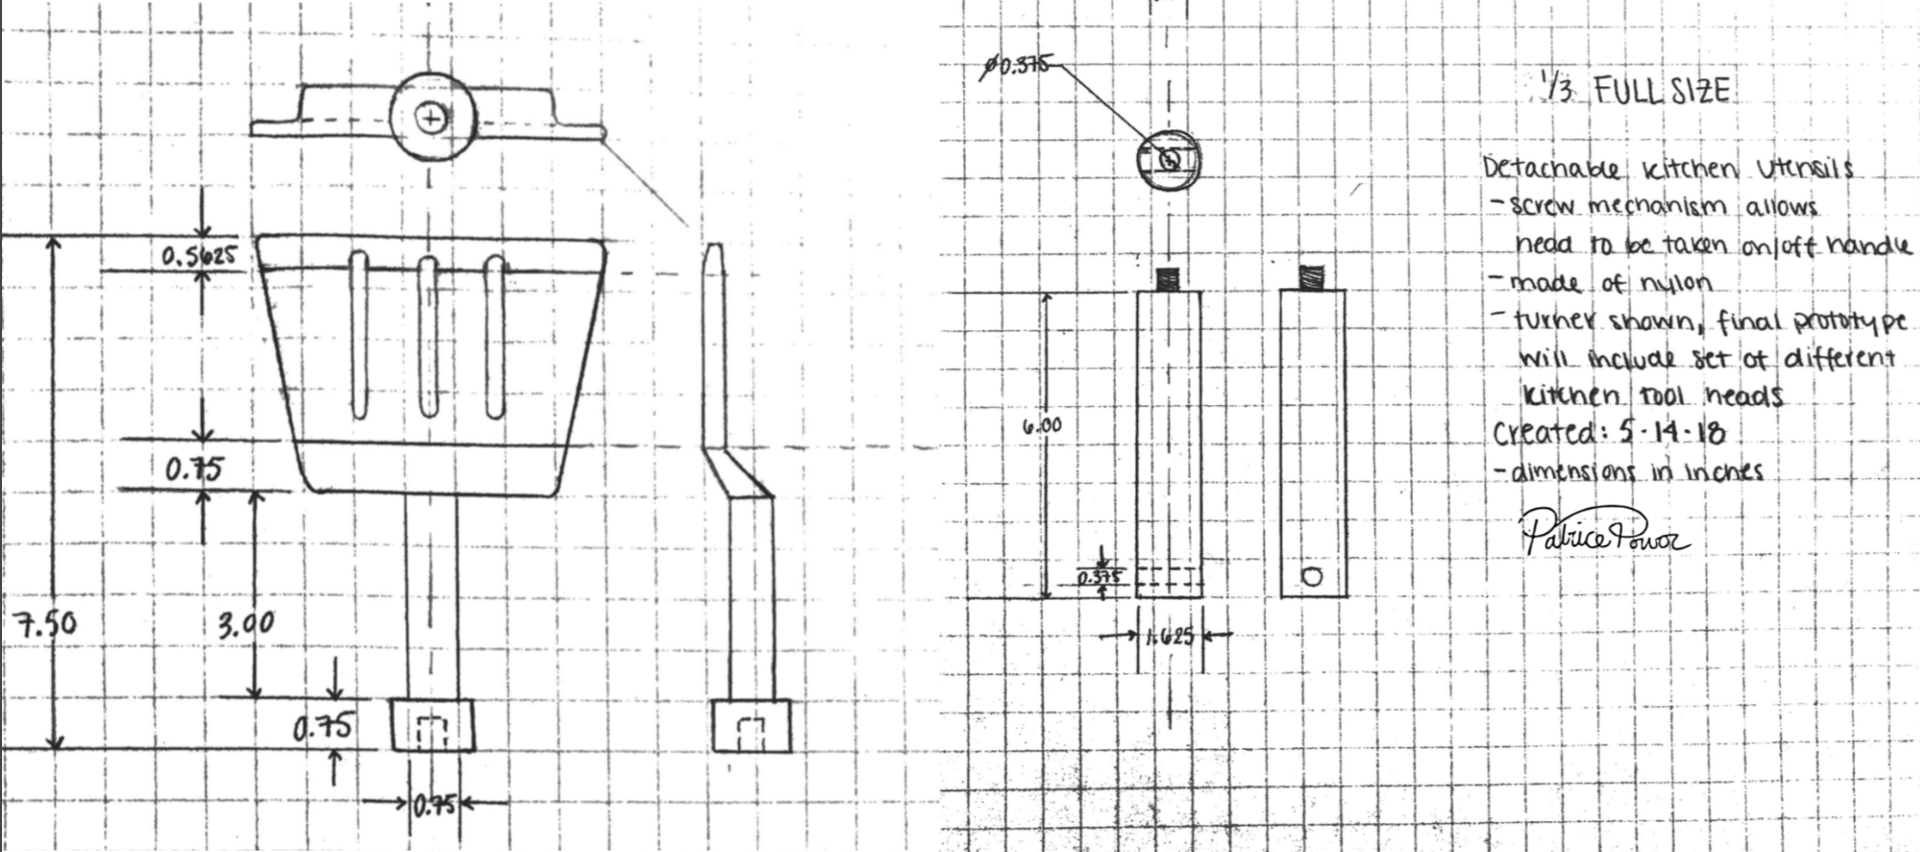 0.5625
0.75
7.50
3.00
0.75
0.75
Ø0.375
6.00
0.375
1.625
1/3 FULL SIZE
Detachable kitchen utensils
-screw mechanism allows
head to be taken on/off handle
-made of nylon
-turner shown, final prototype
will include set of different
kitchen tool heads
Created: 5-14-18
-dimensions in inches
Patrice Power